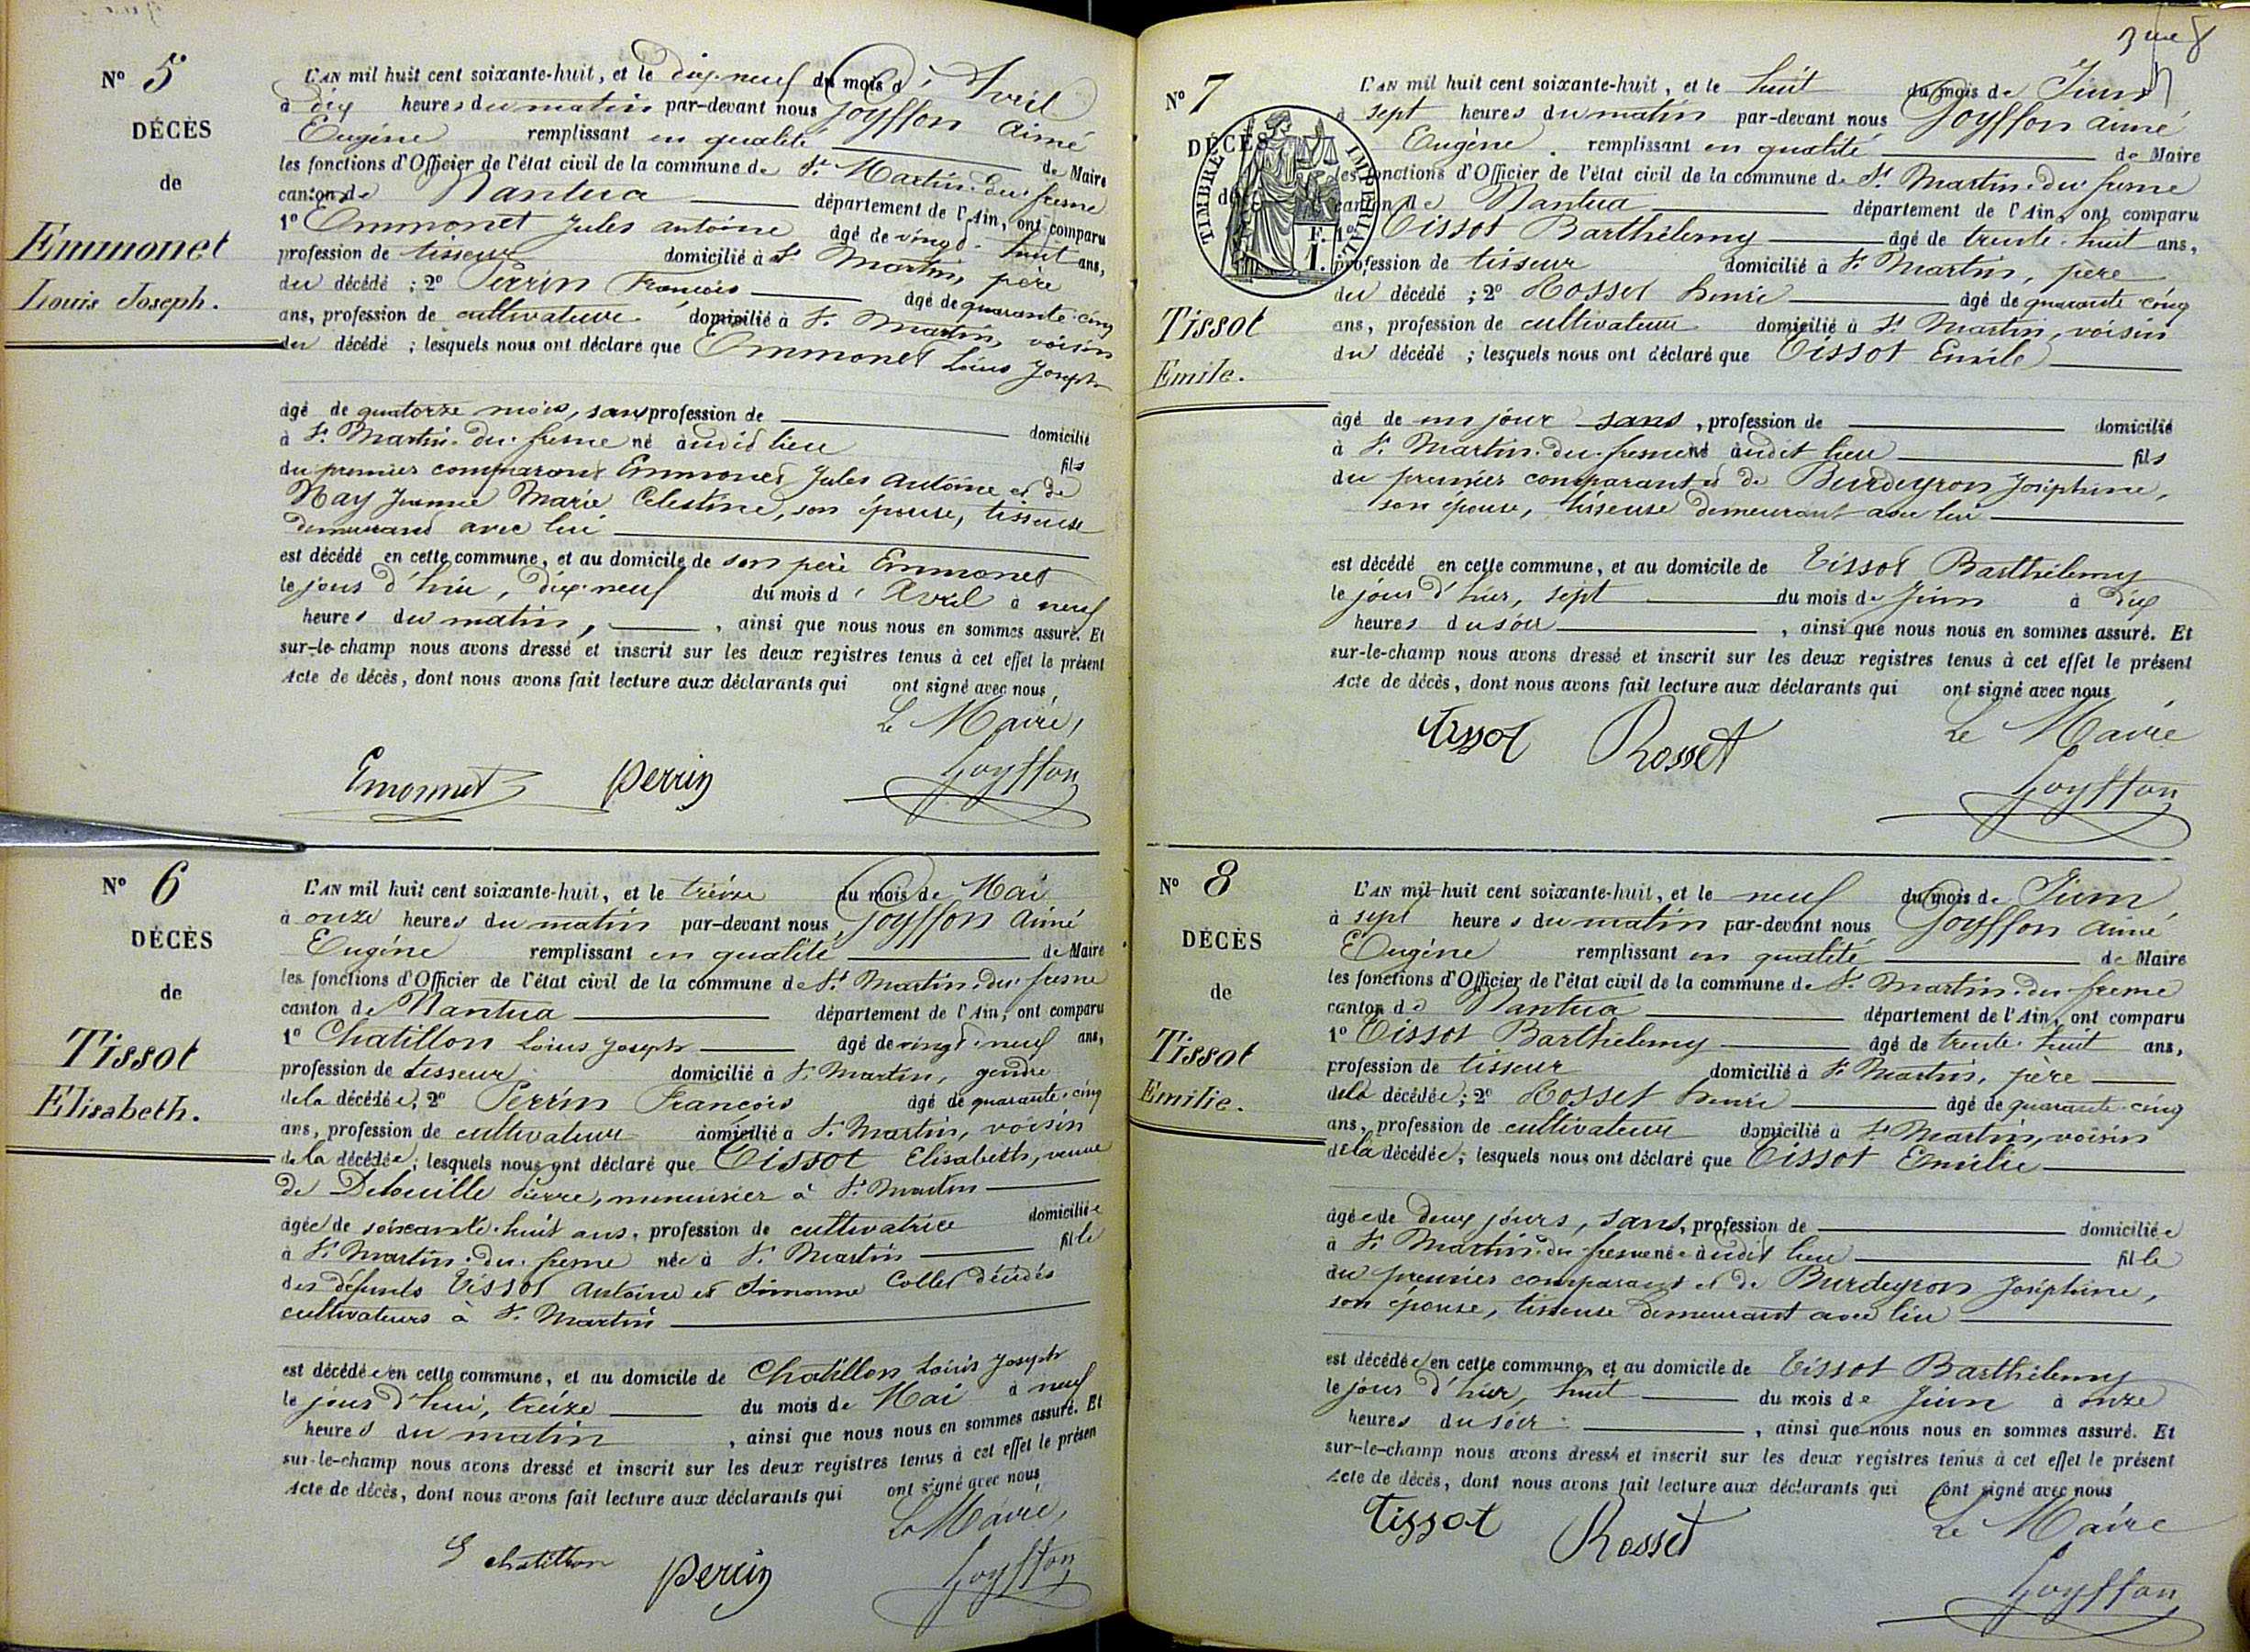 Nº 5
DÉCÈS
de
Emmonet
Louis Joseph.
L'AN mil huit cent soixante-huit, et le dix-neuf du mois d'Avril
à dix heures du matin par-devant nous Goyffon Aimé
Eugène remplissant en qualité de Maire
les fonctions d'Officier de l'état civil de la commune de St Martin-du-fresne
canton de Nantua département de l'Ain, ont comparu
1º Emmonet Jules antoine âgé de vingt-huit ans,
profession de tisseur domicilié à St Martin, père
du décédé ; 2º Perrin François âgé de quarante-cinq
ans, profession de cultivateur domicilié à St Martin, voisin
du décédé ; lesquels nous ont déclaré que Emmonet Louis Joseph
âgé de quatorze mois, sans profession de domicilié
à St Martin-du-fresne né audit lieu fils
du premier comparant Emmonet Jules Antoine et de
Nay Jeanne Marie Celestine, son épouse, tisseuse
demeurant avec lui
est décédé en cette commune, et au domicile de son père Emmonet
le jour d'hui, dix-neuf du mois d'Avril à neuf
heures du matin, , ainsi que nous nous en sommes assuré. Et
sur-le-champ nous avons dressé et inscrit sur les deux registres tenus à cet effet le présent
Acte de décès, dont nous avons fait lecture aux déclarants qui ont signé avec nous,
Le Maire,
Emonnet Perrin Goyffon
Nº 6
DÉCÈS
de
Tissot
Elisabeth.
L'AN mil huit cent soixante-huit, et le treize du mois de Mai
à onze heures du matin par-devant nous Goyffon Aimé
Eugène remplissant en qualité de Maire
les fonctions d'Officier de l'état civil de la commune de St Martin-du-fresne
canton de Nantua département de l'Ain, ont comparu
1º Chatillon Louis Joseph âgé de vingt-neuf ans,
profession de tisseur domicilié à St Martin, gendre
de la décédée, 2º Perrin François âgé de quarante-cinq
ans, profession de cultivateur domicilié à St Martin, voisin
de la décédée ; lesquels nous ont déclaré que Tissot Elisabeth, veuve
de Pierre, menuisier à St Martin
âgée de soixante-huit ans, profession de cultivatrice domiciliée
à St Martin-du-fresne née à St Martin fille
des défunts Tissot Antoine et Simonne Collet décédés
cultivateurs à St Martin
est décédée en cette commune, et au domicile de Chatillon Louis Joseph
le jour d'hui, treize du mois de Mai à neuf
heures du matin , ainsi que nous nous en sommes assuré. Et
sur-le-champ nous avons dressé et inscrit sur les deux registres tenus à cet effet le présen
Acte de décès, dont nous avons fait lecture aux déclarants qui ont signé avec nous
Le Maire,
chatillon Perrin Goyffon
Nº 7
DÉCÈS
de
TIMBRE IMPÉRIAL
F.
1.
Tissot
Emile.
L'AN mil huit cent soixante-huit, et le huit du mois de Juin
à sept heures du matin par-devant nous Goyffon aimé
Eugène remplissant en qualité de Maire
les fonctions d'Officier de l'état civil de la commune de St Martin-du-fresne
canton de Nantua département de l'Ain, ont comparu
1º Tissot Barthélemy âgé de trente-huit ans,
profession de tisseur domicilié à St Martin, père
du décédé ; 2º Rosset henri âgé de quarante cinq
ans, profession de cultivateur domicilié à St Martin, voisin
du décédé ; lesquels nous ont déclaré que Tissot Emile
âgé de un jour sans, profession de domicilié
à St Martin-du-fresne né audit lieu fils
du premier comparant et de Burdeyron Joséphine,
son épouse, tisseuse demeurant avec lui
est décédé en cette commune, et au domicile de Tissot Barthélemy
le jour d'hier, sept du mois de Juin à dix
heures du soir , ainsi que nous nous en sommes assuré. Et
sur-le-champ nous avons dressé et inscrit sur les deux registres tenus à cet effet le présent
Acte de décès, dont nous avons fait lecture aux déclarants qui ont signé avec nous
Le Maire
Tissot Rosset Goyffon
Nº 8
DÉCÈS
de
Tissot
Emilie.
L'AN mil huit cent soixante-huit, et le neuf du mois de Juin
à sept heures du matin par-devant nous Goyffon Aimé
Eugène remplissant en qualité de Maire
les fonctions d'Officier de l'état civil de la commune de St Martin-du-fresne
canton de Nantua département de l'Ain, ont comparu
1º Tissot Barthélemy âgé de trente-huit ans,
profession de tisseur domicilié à St Martin, père
de la décédée ; 2º Rosset henri âgé de quarante-cinq
ans, profession de cultivateur domicilié à St Martin, voisin
de la décédée ; lesquels nous ont déclaré que Tissot Emilie
âgée de deux jours, sans, profession de domiciliée
à St Martin-du-fresne née audit lieu fille
du premier comparant et de Burdeyron Joséphine,
son épouse, tisseuse demeurant avec lui
est décédée en cette commune, et au domicile de Tissot Barthélemy
le jour d'hier, huit du mois de Juin à onze
heures du soir , ainsi que nous nous en sommes assuré. Et
sur-le-champ nous avons dressé et inscrit sur les deux registres tenus à cet effet le présent
Acte de décès, dont nous avons fait lecture aux déclarants qui ont signé avec nous
Le Maire
Tissot Rosset Goyffon